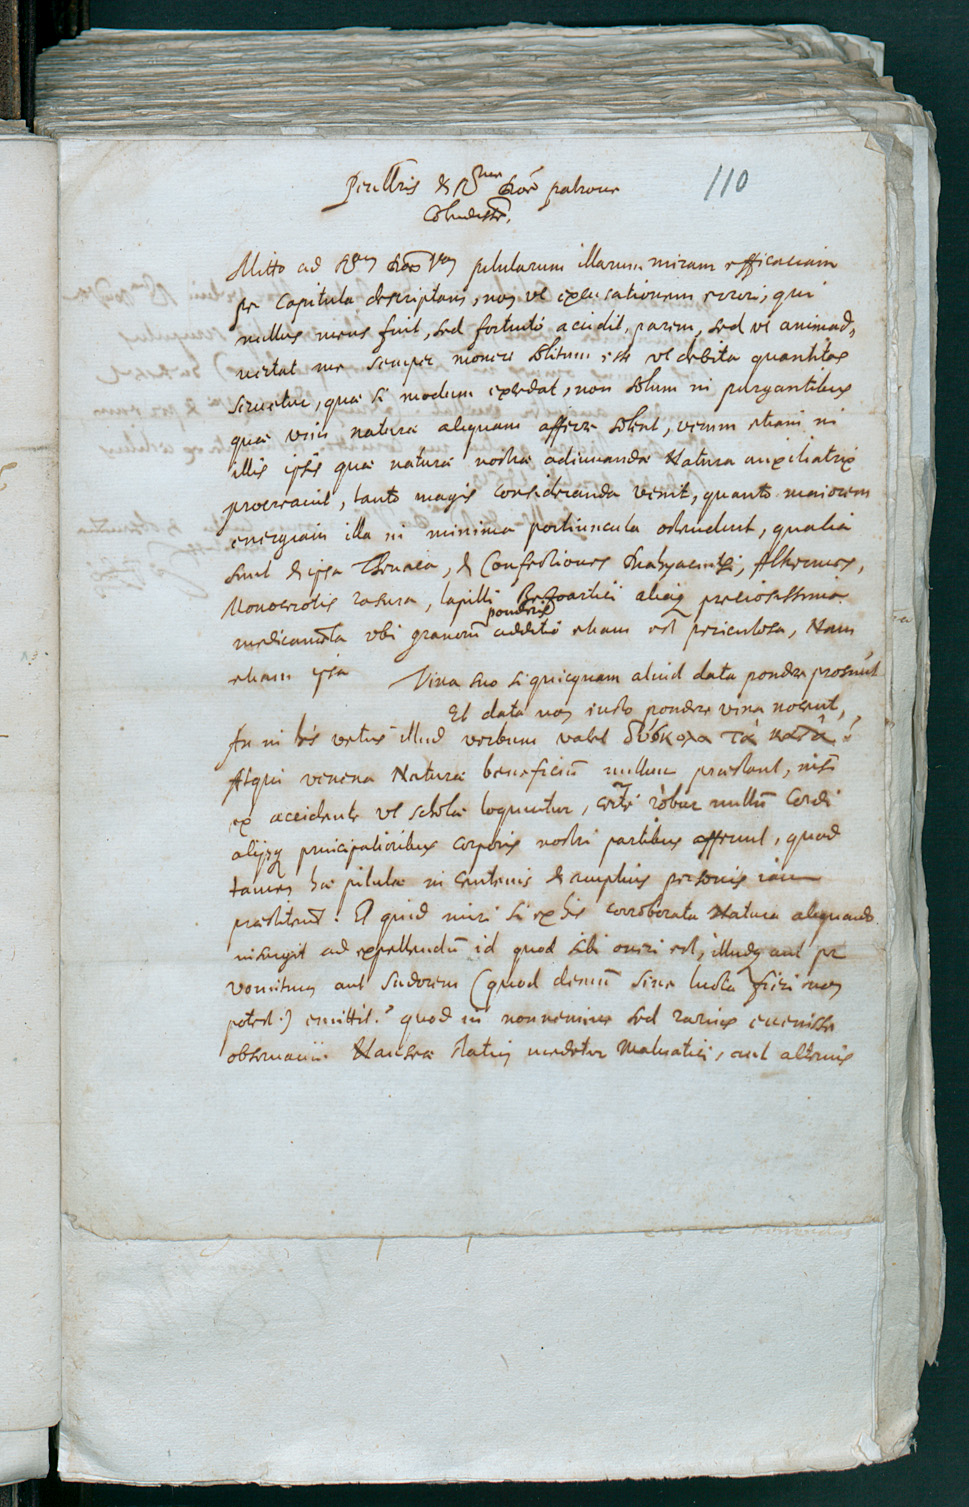 Perillris & Rme Dne patrone
Colendissme,
110
Mitto ad Ram Dom Vam pilularum illarum miram efficaciam
per capitula descriptam, non ut excusationem errori, qui
nullus meus fuit, sed fortuitò accidit, parem, sed ut animad,
vertat me semper monere solitum esse ut debita quantitas
seruetur, quæ si modum excedat, non solum in purgantibus
quæ vim naturæ aliquam afferre solent, verum etiam in
illis ipsis quæ naturæ nostræ adiuuandæ Natura auxiliatrix
procreauit, tanto magis consideranda venit, quanto maiorem
energiam illa in minima portiuncula ostendunt, qualia
sunt & ipsa Theriaca, & Confectiones Alkermes,
Monocerotis rasura, lapilli Bezoartici aliaq preciosissima
ponderis
medicamta vbi granorū additio etiam est periculosa, Nam
etiam ipsa Vina suo si quicquam aliud data pondere prosunt
Et data non iusto pondere vina nocent,
An in his vetus illud verbum valet δύσκολα τὰ καλά?
Atqui venena Naturæ beneficiū nullum præstant, nisi
ex accidente ut scholæ loquuntur, certè robur nullū Cordi
alijsq principalioribus corporis nostri partibus afferunt, quod
tamen hæ pilulæ in centenis & amplius personis iam
præstiterūt. Et quid miri si ex his corroborata Natura aliquando
insurgit ad expellendū id quod sibi oneri est, illudq aut per
vomitum aut sudorem (quod demū sine lucta fieri non
potest.) emittit? quod in nonnemine sed rarius euenisse
obseruaui. Nauseæ statim medetur Maluatici, aut alterius